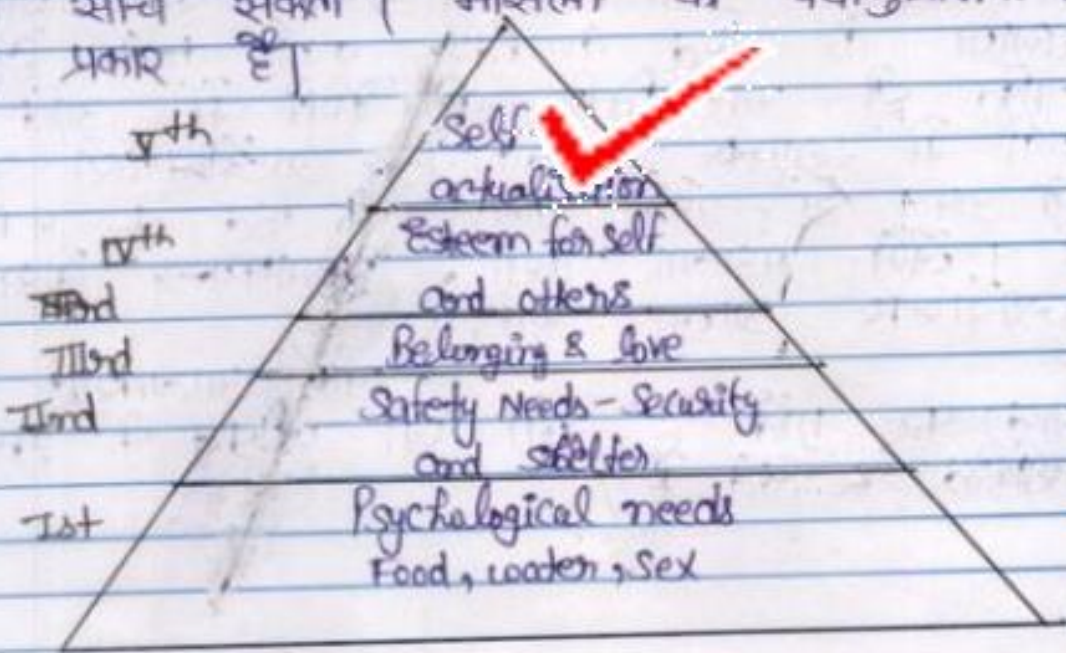 प्रकार है।
Vth
Self
actualisation
IVth
Esteem for self
and others
IIIrd
Belonging & love
IInd
Safety Needs - Security
and shelter
Ist
Psychological needs
Food, water, sex